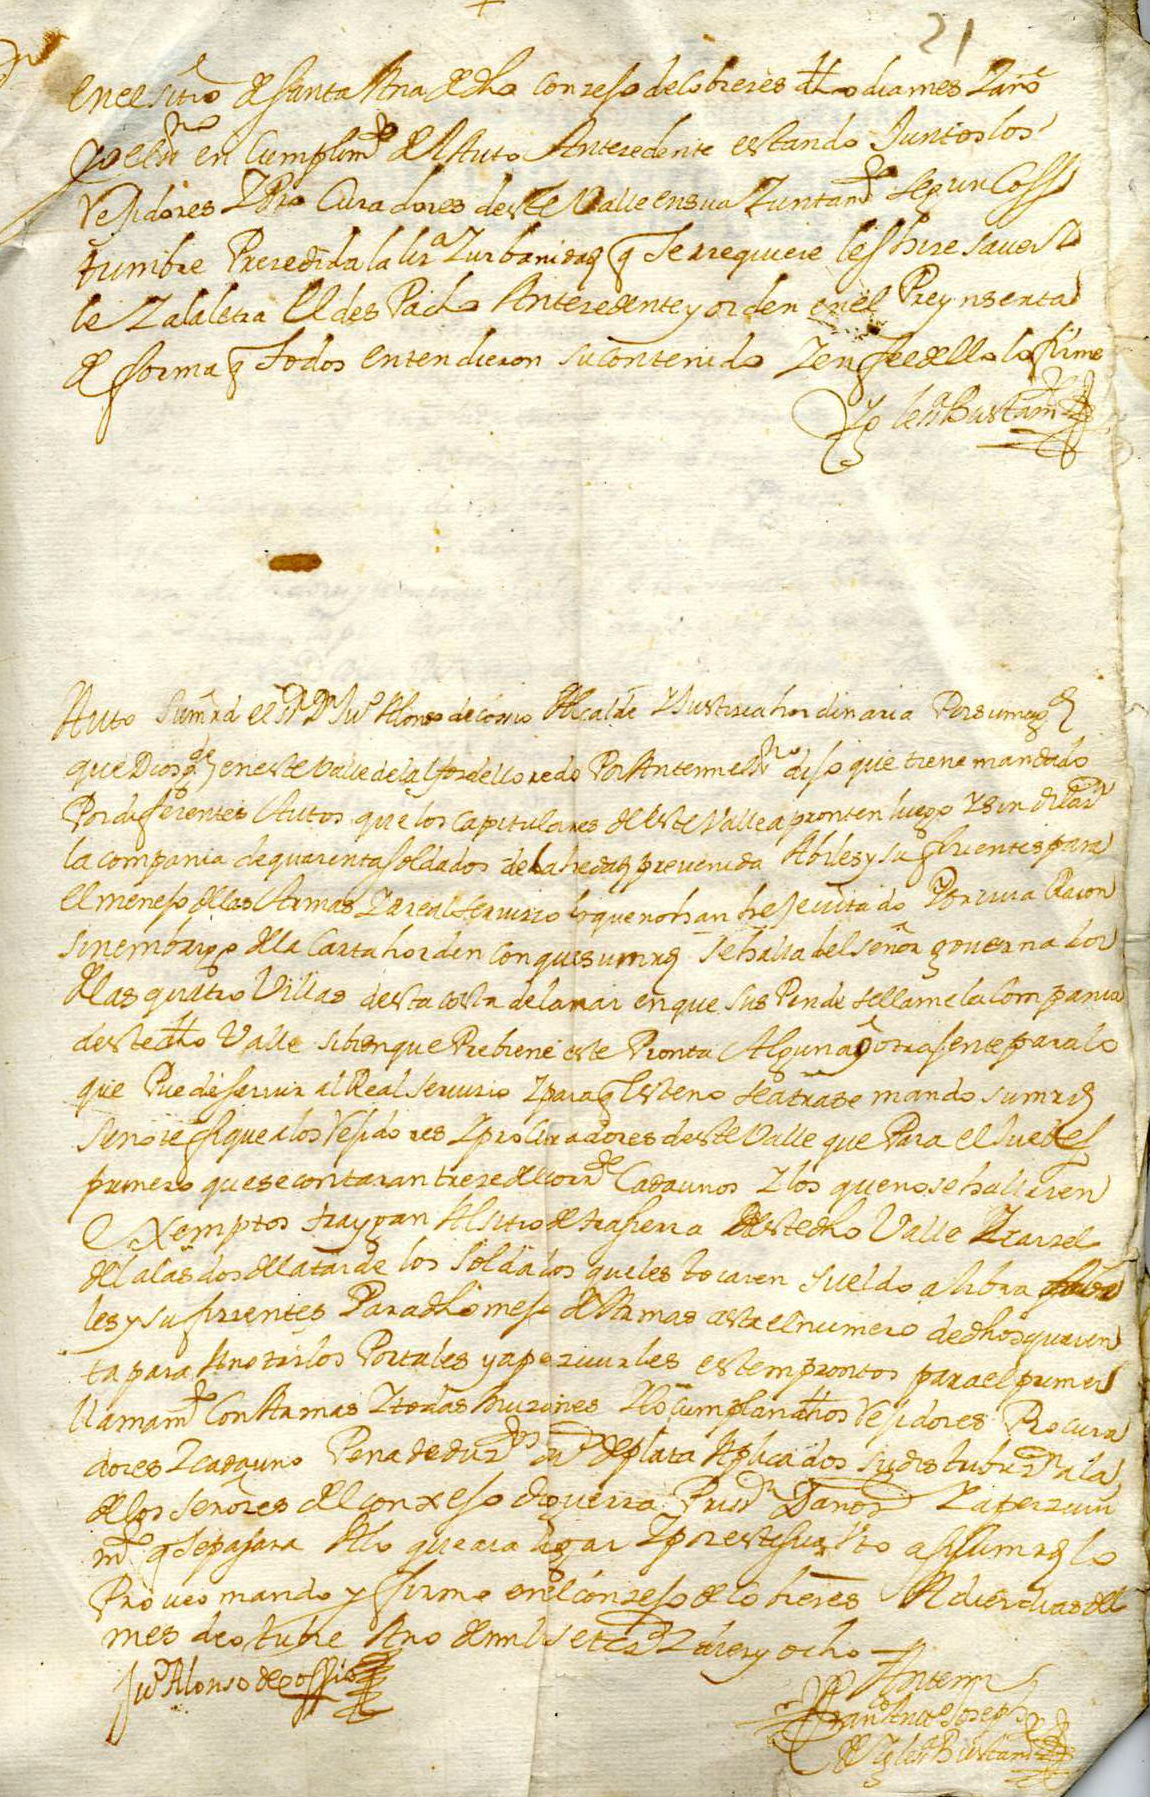 21
en el sitio de Santa Ana de dho conzejo de Cobreces dho dia mes y año
yo el sno en Cumplimto del Auto Antecedente estando Juntos los
Rejidores y Procuradores deste Valle en su Juntamto segun Cos
tumbre Precedida la ura y urbanidad q se requiere les hice saver
le y a la letra el des Pacho Antecedente y orden en el Preynserta
de forma q todos entendieron su contenido y en fee de ello lo firme
Ygleª Bustamte
Auto Su mrd el Sr Dn Juº Alonso de cosio Alcalde y Justicia hordinaria Por su magd
que Dios gde en este Valle de la alfoz de lloredo Por Ante mi el sno dijo que tiene mandado
Por diferentes Autos que los Capitulares de este Valle apronten luego y sin dilazn
la compania de quarenta soldados de la hedad prevenida Abiles y sufizientes para
el menejo de las Armas y a real servizio lo que no han hejecutado Por cuia Razon
sin embargo de la Carta horden con que su mrd se halla del señor governador
de las quatro Villas desta costa de la mar en que sus Pende se llame la Compania
deste dho Valle si bien que Prebiene este Pronta Alguna otra jente para lo
que Puede servir al Real servizio y para q esto no se atrase mando su mrd
se notefique a los Rejidores y procuradores deste Valle que Para el Jueves
primero que se contaran treze del corrte Cada unos y los que no se hallaren
Exemptos traygan Al sitio de trasierra deste dho Valle y carzel
de el a las dos de la tarde los soldados que les tocaren sueldo a libra
les y sufizientes Para dho menejo de Armas asta el numero de dhos quaren
ta para Anotarlos Portales y aperzivirles esten prontos para el primer
llamamto Con Armas y todas Municiones y lo cumplan dhos Rejidores Procura
dores y cada uno Pena de duzdos de plata Aplicados su distribuzn a la
de los señores del conzejo de guerra Prisn Daños y aperzivi
mto q se pasara A lo que aia lugar y por este su Auto assi su mrd lo
Proveo mando y firmo en el conzejo de Cobreces A diez dias del
mes de octubre Año de mil setezos y diez y ocho
Juº Alonso de Cossio
Ante mi
Franco Antº Joseph
de Ygleª Bustamte